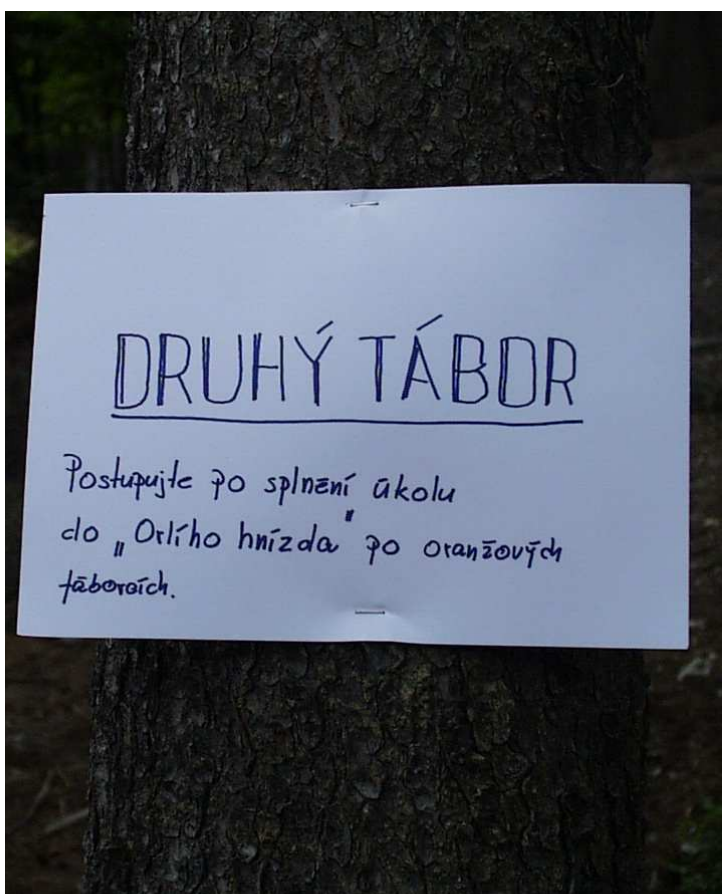 DRUHÝ TÁBOR
Postupujte po splnění úkolu
do „Orlího hnízda" po oranžových
fáborcích.